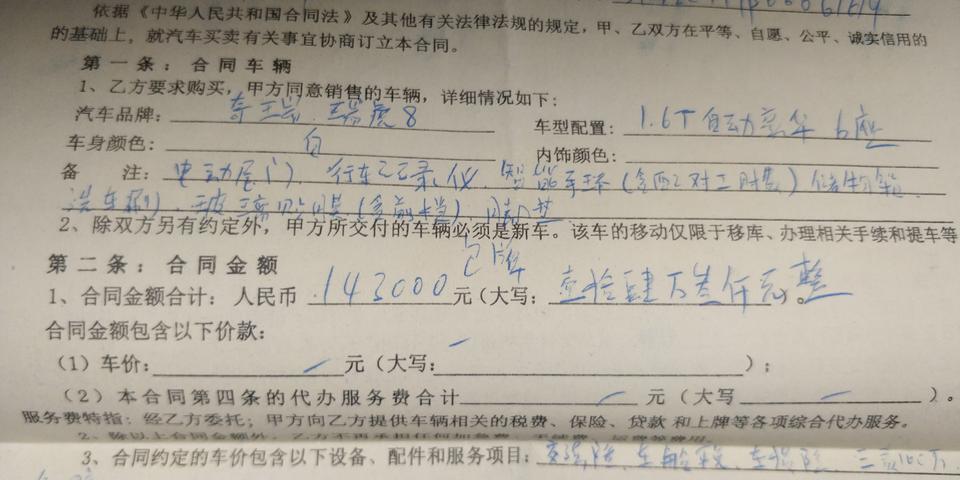 依据《中华人民共和国合同法》及其他有关法律法规的规定，甲、乙双方在平等、自愿、公平、诚实信用的
的基础上，就汽车买卖有关事宜协商订立本合同。
第一条：合同车辆
1、乙方要求购买，甲方同意销售的车辆，详细情况如下：
汽车品牌：奇瑞 瑞虎8 车型配置：1.6T自动豪华 6座
车身颜色：白 内饰颜色：
备 注：电动尾门、行车记录仪、智能手环（含配2对1时装）储物箱
洗车 玻璃贴膜（含前挡）、
2、除双方另有约定外，甲方所交付的车辆必须是新车。该车的移动仅限于移库、办理相关手续和提车等
第二条：合同金额
1、合同金额合计：人民币 143000 元（大写：壹拾肆万叁仟元整）。
合同金额包含以下价款：
（1）车价： 元（大写： ）；
（2）本合同第四条的代办服务费合计 元（大写 ）。
服务费特指：经乙方委托；甲方向乙方提供车辆相关的税费、保险、贷款和上牌等各项综合代办服务。
3、合同约定的车价包含以下设备、配件和服务项目：交强险、车船税、